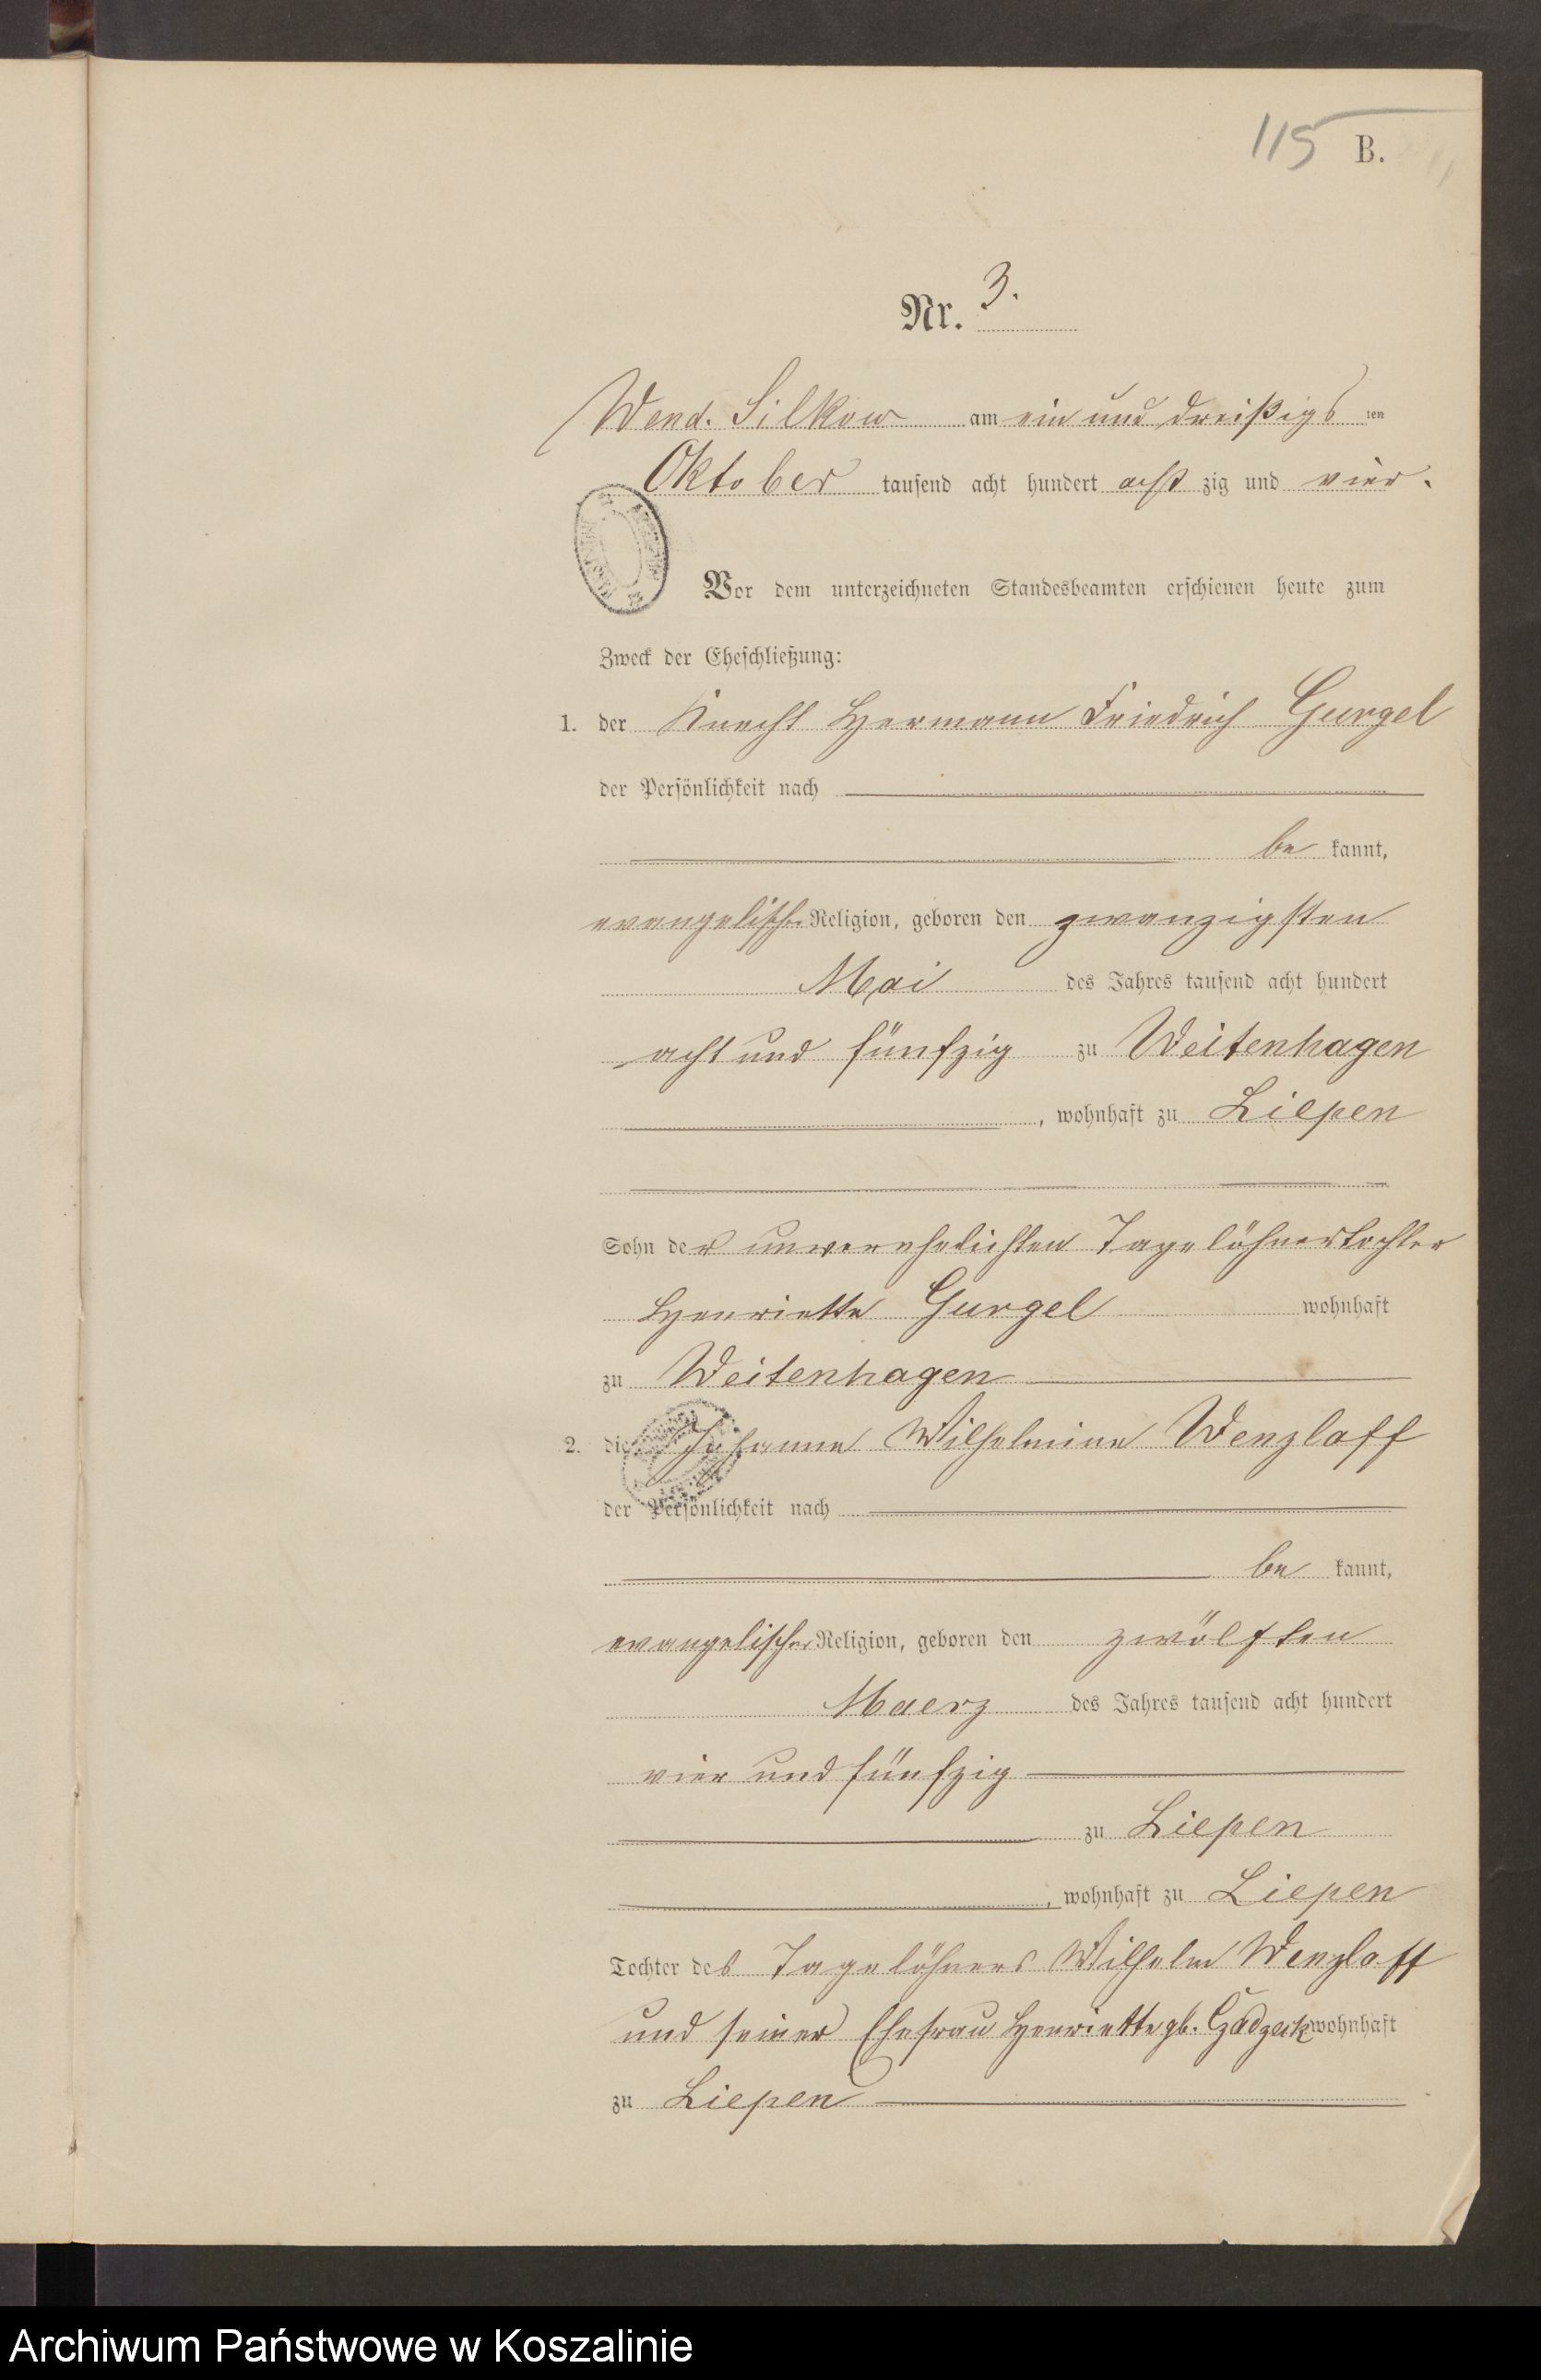 115 B.
Nr. 3.
Wend. Silkow am ein und dreißigs ten
Oktober tausend acht hundert acht zig und vier.
Vor dem unterzeichneten Standesbeamten erschienen heute zum
Zweck der Eheschließung:
1. der Knecht Hermann Friedrich Gurgel
der Persönlichkeit nach
be kannt,
evangelischer Religion, geboren den zwanzigsten
Mai des Jahres tausend acht hundert
acht und fünfzig zu Weitenhagen
, wohnhaft zu Liepen
Sohn der unverehelichten Tagelöhnertochter
Henriette Gurgel wohnhaft
zu Weitenhagen
2. die Johanne Wilhelmine Wenzlaff
der Persönlichkeit nach
be kannt,
evangelischer Religion, geboren den zwölften
Maerz des Jahres tausend acht hundert
vier und fünfzig
zu Liepen
, wohnhaft zu Liepen
Tochter des Tagelöhners Wilhelm Wenzlaff
und seiner Ehefrau Henriette gb. wohnhaft
zu Liepen
Archiwum Państwowe w Koszalinie